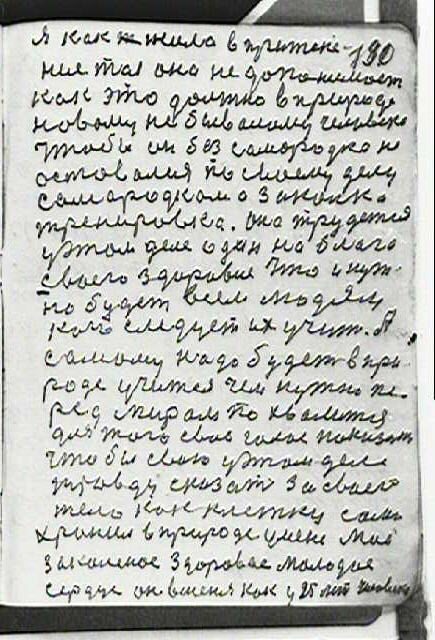 я как жила в притяне- 190
ния та она не допонимает
как это должно в природе
новому небывалому человеку
чтобы он без самородка не
остовался по своему делу
самародком а закалка
тренировка. она трудется
у этом деле один на благо
своего здоровия что и нуж-
но будет всем людям
кого следует их учит. А
самому надо будет в при-
роде учится чем нужно пе-
ред миром похвалится
для этого свое голос показат
чтобы свою у этом деле
правду сказат за своего
тело как клетку сам
хранил в природе имене мое
закаленое здоровое молодое
сердце он вменя как у 25 лет человека